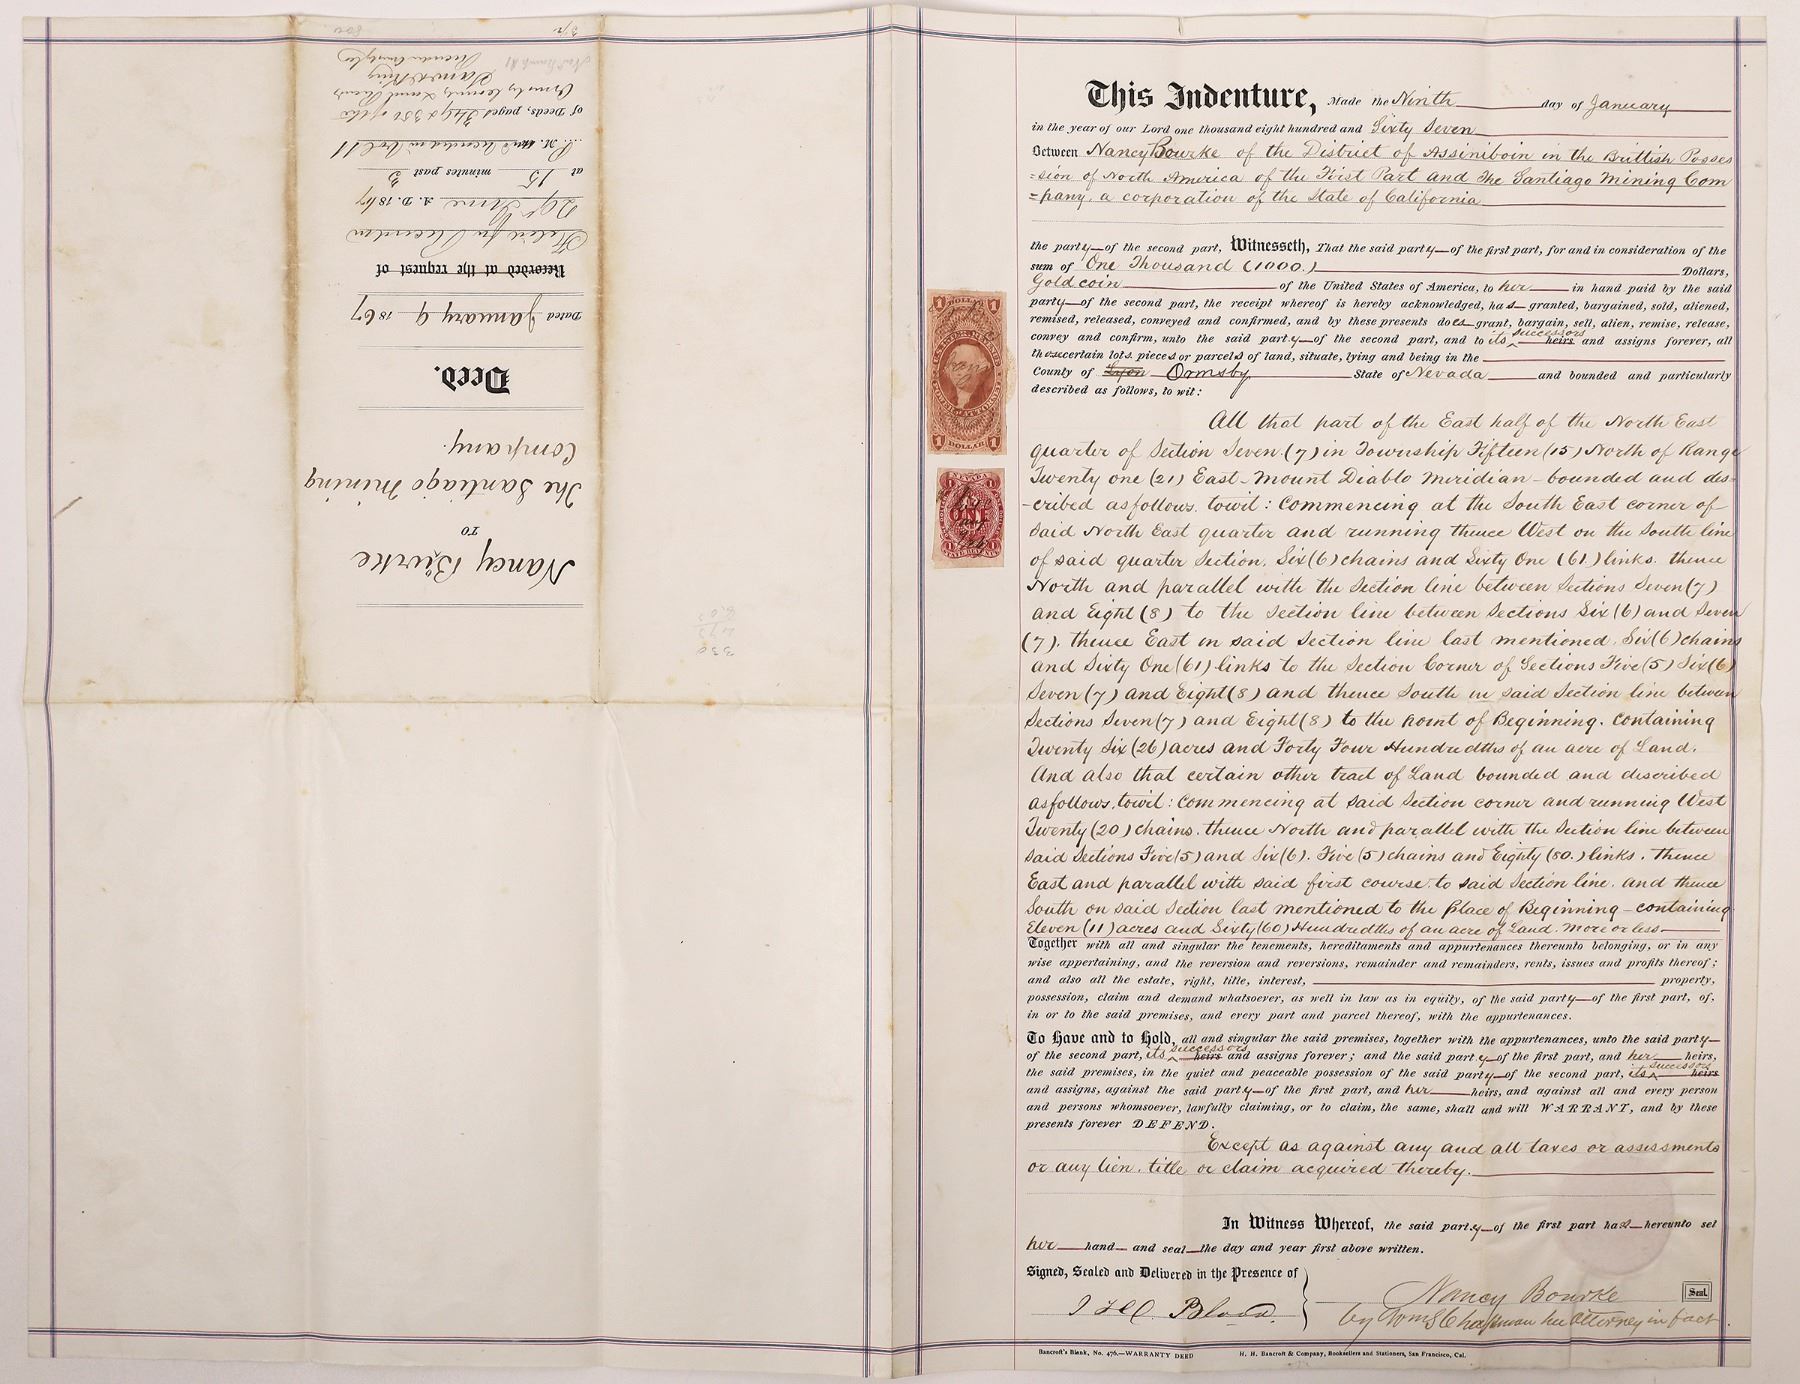 This Indenture, Made the Ninth day of January
in the year of our Lord one thousand eight hundred and Sixty Seven
Between Nancy Bourke of the District of Assiniboin in the Brittish Posses
=sion of North America of the First Part and The Santiago Mining Com
=pany, a corporation of the State of California
the party of the second part, Witnesseth, That the said party of the first part, for and in consideration of the
sum of One Thousand (1000.) Dollars,
Gold coin of the United States of America, to her in hand paid by the said
party of the second part, the receipt whereof is hereby acknowledged, has granted, bargained, sold, aliened,
remised, released, conveyed and confirmed, and by these presents does grant, bargain, sell, alien, remise, release,
convey and confirm, unto the said party of the second part, and to its successors heirs and assigns forever, all
those certain lots pieces or parcels of land, situate, lying and being in the
County of Lyon Ormsby State of Nevada and bounded and particularly
described as follows, to wit:
All that part of the East half of the North East
quarter of Section Seven (7) in Township Fifteen (15) North of Range
Twenty one (21) East - Mount Diablo Meridian - bounded and des-
-cribed as follows, towit: Commencing at the South East corner of
said North East quarter and running thence West on the South line
of said quarter Section, Six (6) chains and Sixty One (61.) links, thence
North and parallel with the Section line between Sections Seven (7)
and Eight (8) to the Section line between Sections Six (6) and Seven
(7), thence East on said Section line last mentioned, Six (6) chains
and Sixty One (61) links to the Section Corner of Sections Five (5) Six (6)
Seven (7) and Eight (8) and thence South on said Section line between
Sections Seven (7) and Eight (8) to the point of Beginning. Containing
Twenty Six (26) acres and Forty Four Hundredths of an acre of Land.
And also that certain other tract of Land bounded and described
as follows, towit: Commencing at said Section corner and running West
Twenty (20) chains, thence North and parallel with the Section line between
said Sections Five (5) and Six (6), Five (5) chains and Eighty (80.) links, thence
East and parallel with said first course, to said Section line, and thence
South on said Section last mentioned to the place of Beginning - containing
Eleven (11) acres and Sixty (60) Hundredths of an acre of Land. more or less
Together with all and singular the tenements, hereditaments and appurtenances thereunto belonging, or in any
wise appertaining, and the reversion and reversions, remainder and remainders, rents, issues and profits thereof;
and also all the estate, right, title, interest, property,
possession, claim and demand whatsoever, as well in law as in equity, of the said party of the first part, of,
in or to the said premises, and every part and parcel thereof, with the appurtenances.
To Have and to Hold, all and singular the said premises, together with the appurtenances, unto the said party
of the second part, its successors heirs and assigns forever; and the said party of the first part, and her heirs,
the said premises, in the quiet and peaceable possession of the said party of the second part, its successors heirs
and assigns, against the said party of the first part, and her heirs, and against all and every person
and persons whomsoever, lawfully claiming, or to claim, the same, shall and will WARRANT, and by these
presents forever DEFEND.
Except as against any and all taxes or assessments
or any lien, title or claim acquired thereby.
In Witness Whereof, the said party of the first part has hereunto set
her hand and seal the day and year first above written.
Signed, Sealed and Delivered in the Presence of
Blood.
Nancy Bourke
Seal.
by Wm S Chapman her attorney in fact
Bancroft's Blank, No. 476.—WARRANTY DEED
H. H. Bancroft & Company, Booksellers and Stationers, San Francisco, Cal.
1 DOLLAR 1
1 DOLLAR 1
NEVADA
ONE
Nancy Bourke
TO
The Santiago Mining
Company.
Deed.
Dated January 9 1867
Recorded at the request of
Filed for Record
29th June A. D. 1867
at 15 minutes past 3
P. M. and Recorded in Vol 11
of Deeds, pages 349 & 350 of the
Ormsby County Land Records
330
473
8.03